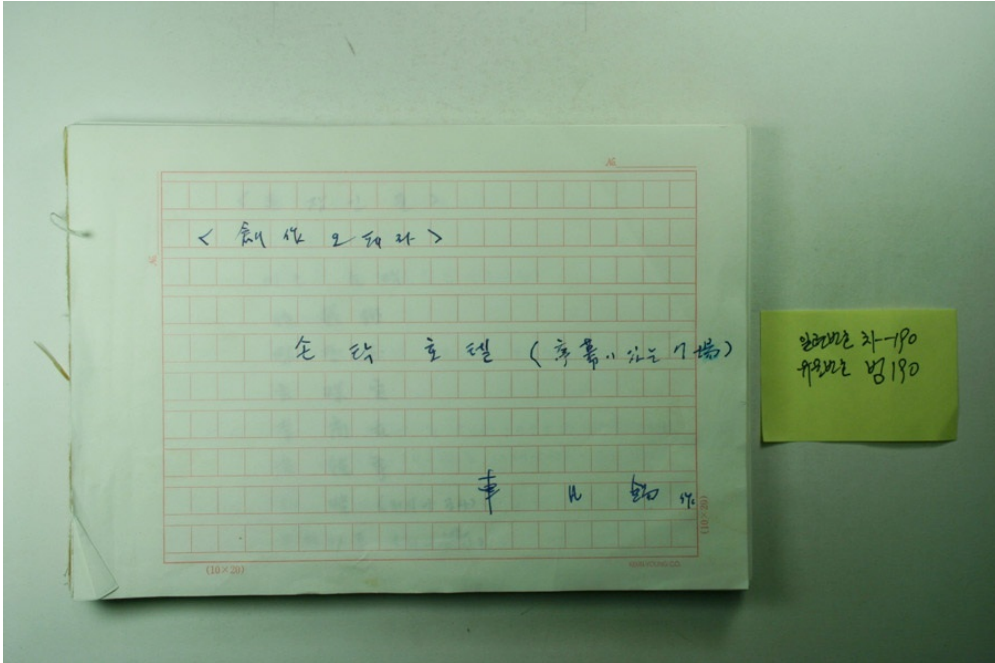 №
< 創作 오페라 >
손탁호텔 (序幕이 있는 7場)
車凡錫 作
(10×20)
(10×20)
일련번호 차-190
유물번호 범190